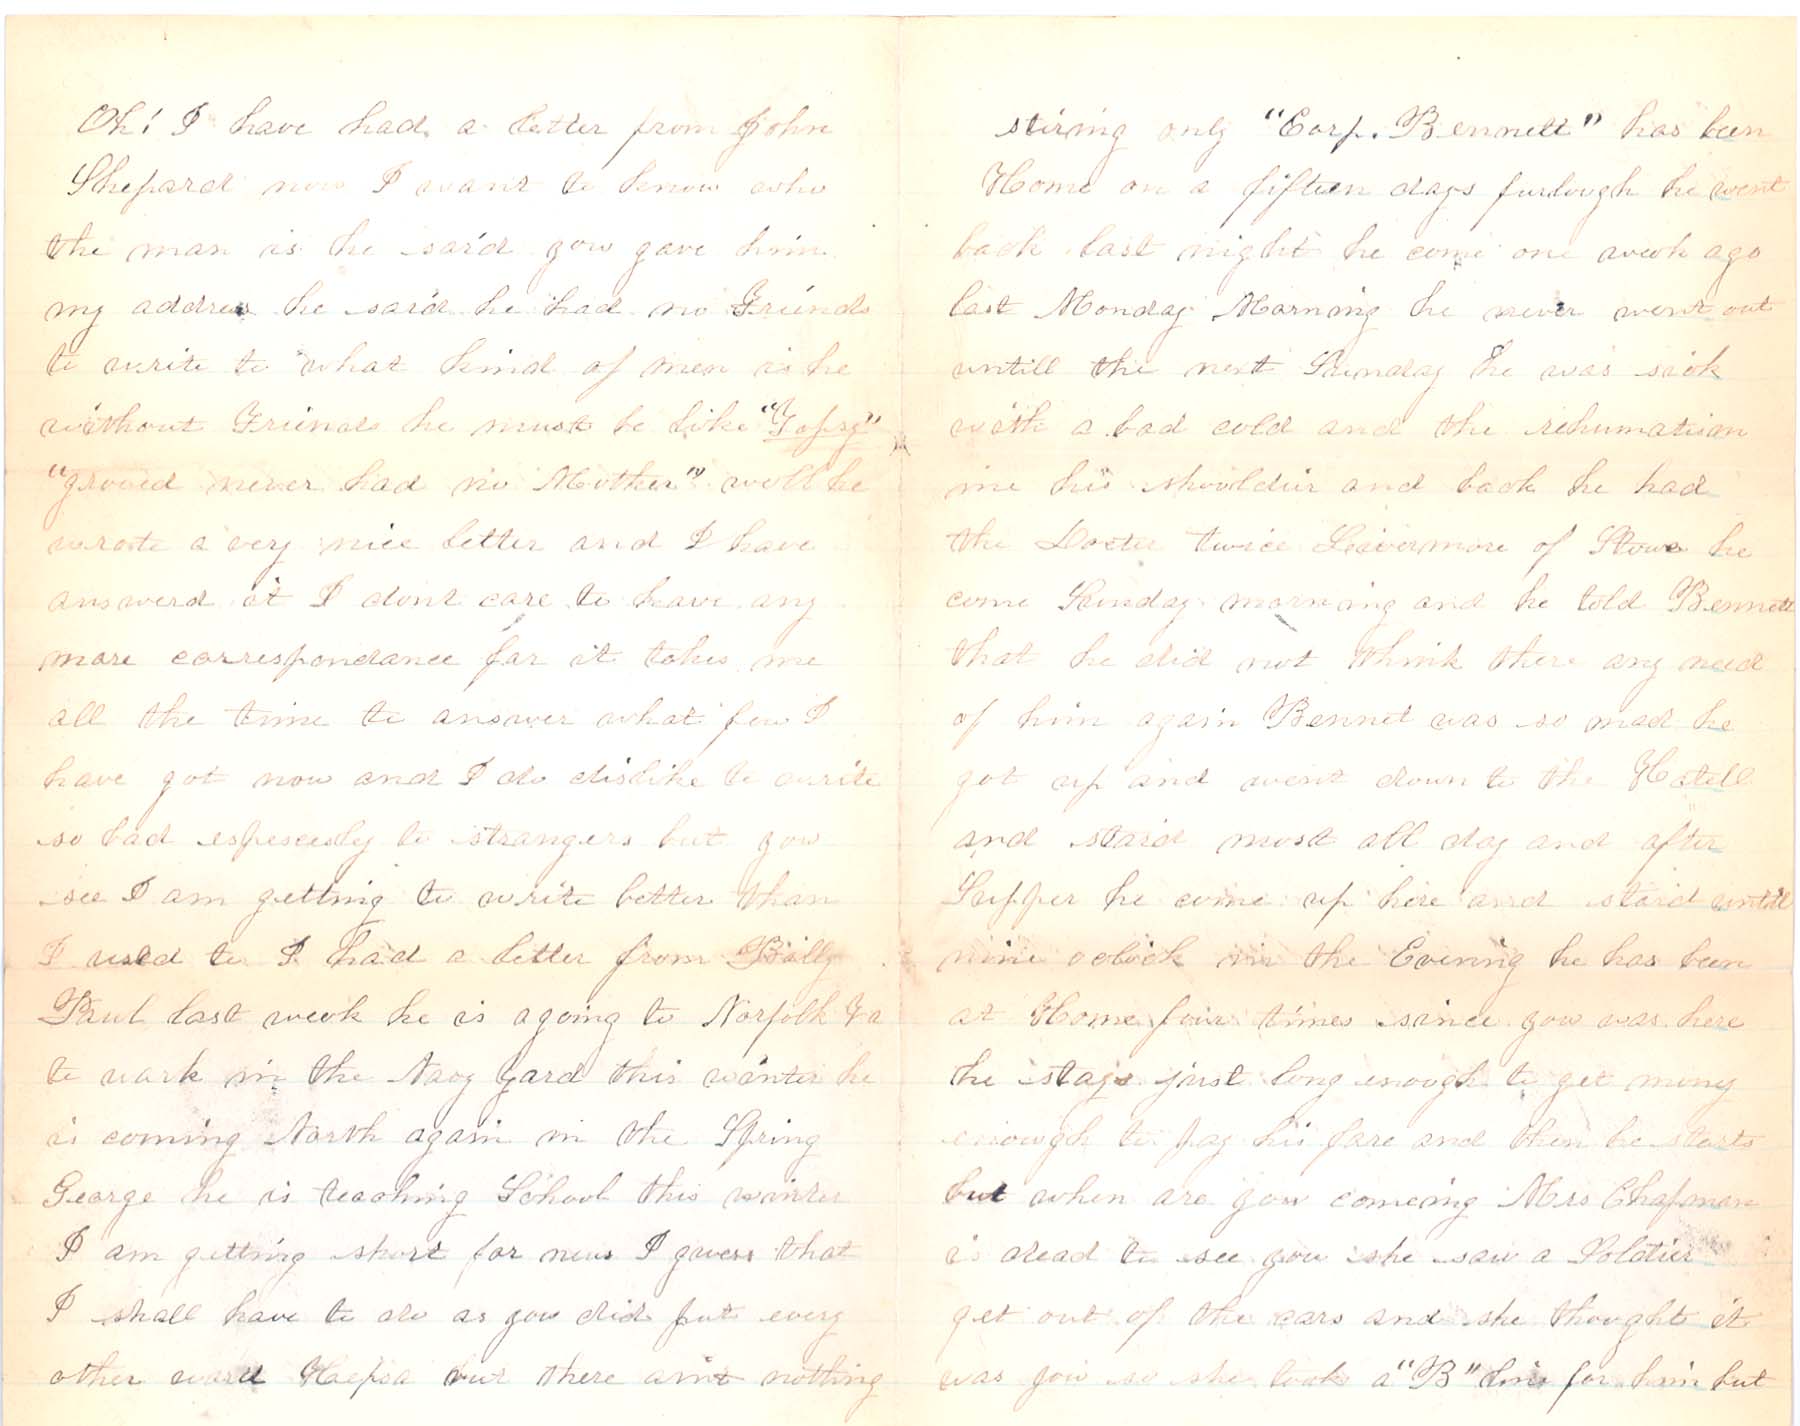 Oh! I have had a letter from John
Shepard now I want to know who
the man is he said you gave him
my address he said he had no Friends
to write to what kind of men is he
without Friends he must be like "Topsy"
"growed never had no Mother" well he
wrote a very nice letter and I have
answerd it I dont care to have any
more correspondance for it takes me
all the time to answer what few I
have got now and I do dislike to write
so bad espesceidy to strangers but you
see I am getting to write better than
I used to I had a letter from Billy
Paul last week he is agoing to Norfolk Va
to work in the Navy Yard this winter he
is coming North again in the Spring
George he is teaching School this winter
I am getting short for news I guess that
I shall have to do as you did put every
other word Hepsa but there aint nothing
stiring only "Corp. Bennett" has been
Home on a fifteen days furlough he went
back last night he come one week ago
last Monday Morning he never went out
untill the next Sunday he was sick
with a bad cold and the rehumatism
in his shouldier and back he had
the Docter twice Livermore of Stowe he
come Sunday morning and he told Bennett
that he did not think there any need
of him again Bennet was so mad he
got up and went down to the Hotell
and staid most all day and after
Supper he come up here and staid untill
nine oclock in the Evening he has been
at Home four times since you was here
he stays just long enough to get mony
enough to pay his fare and then he starts
but when are you comeing Mrs Chapman
is dead to see you she saw a Soldier
get out of the cars and she thought it
was you so she took a "B" line for him but